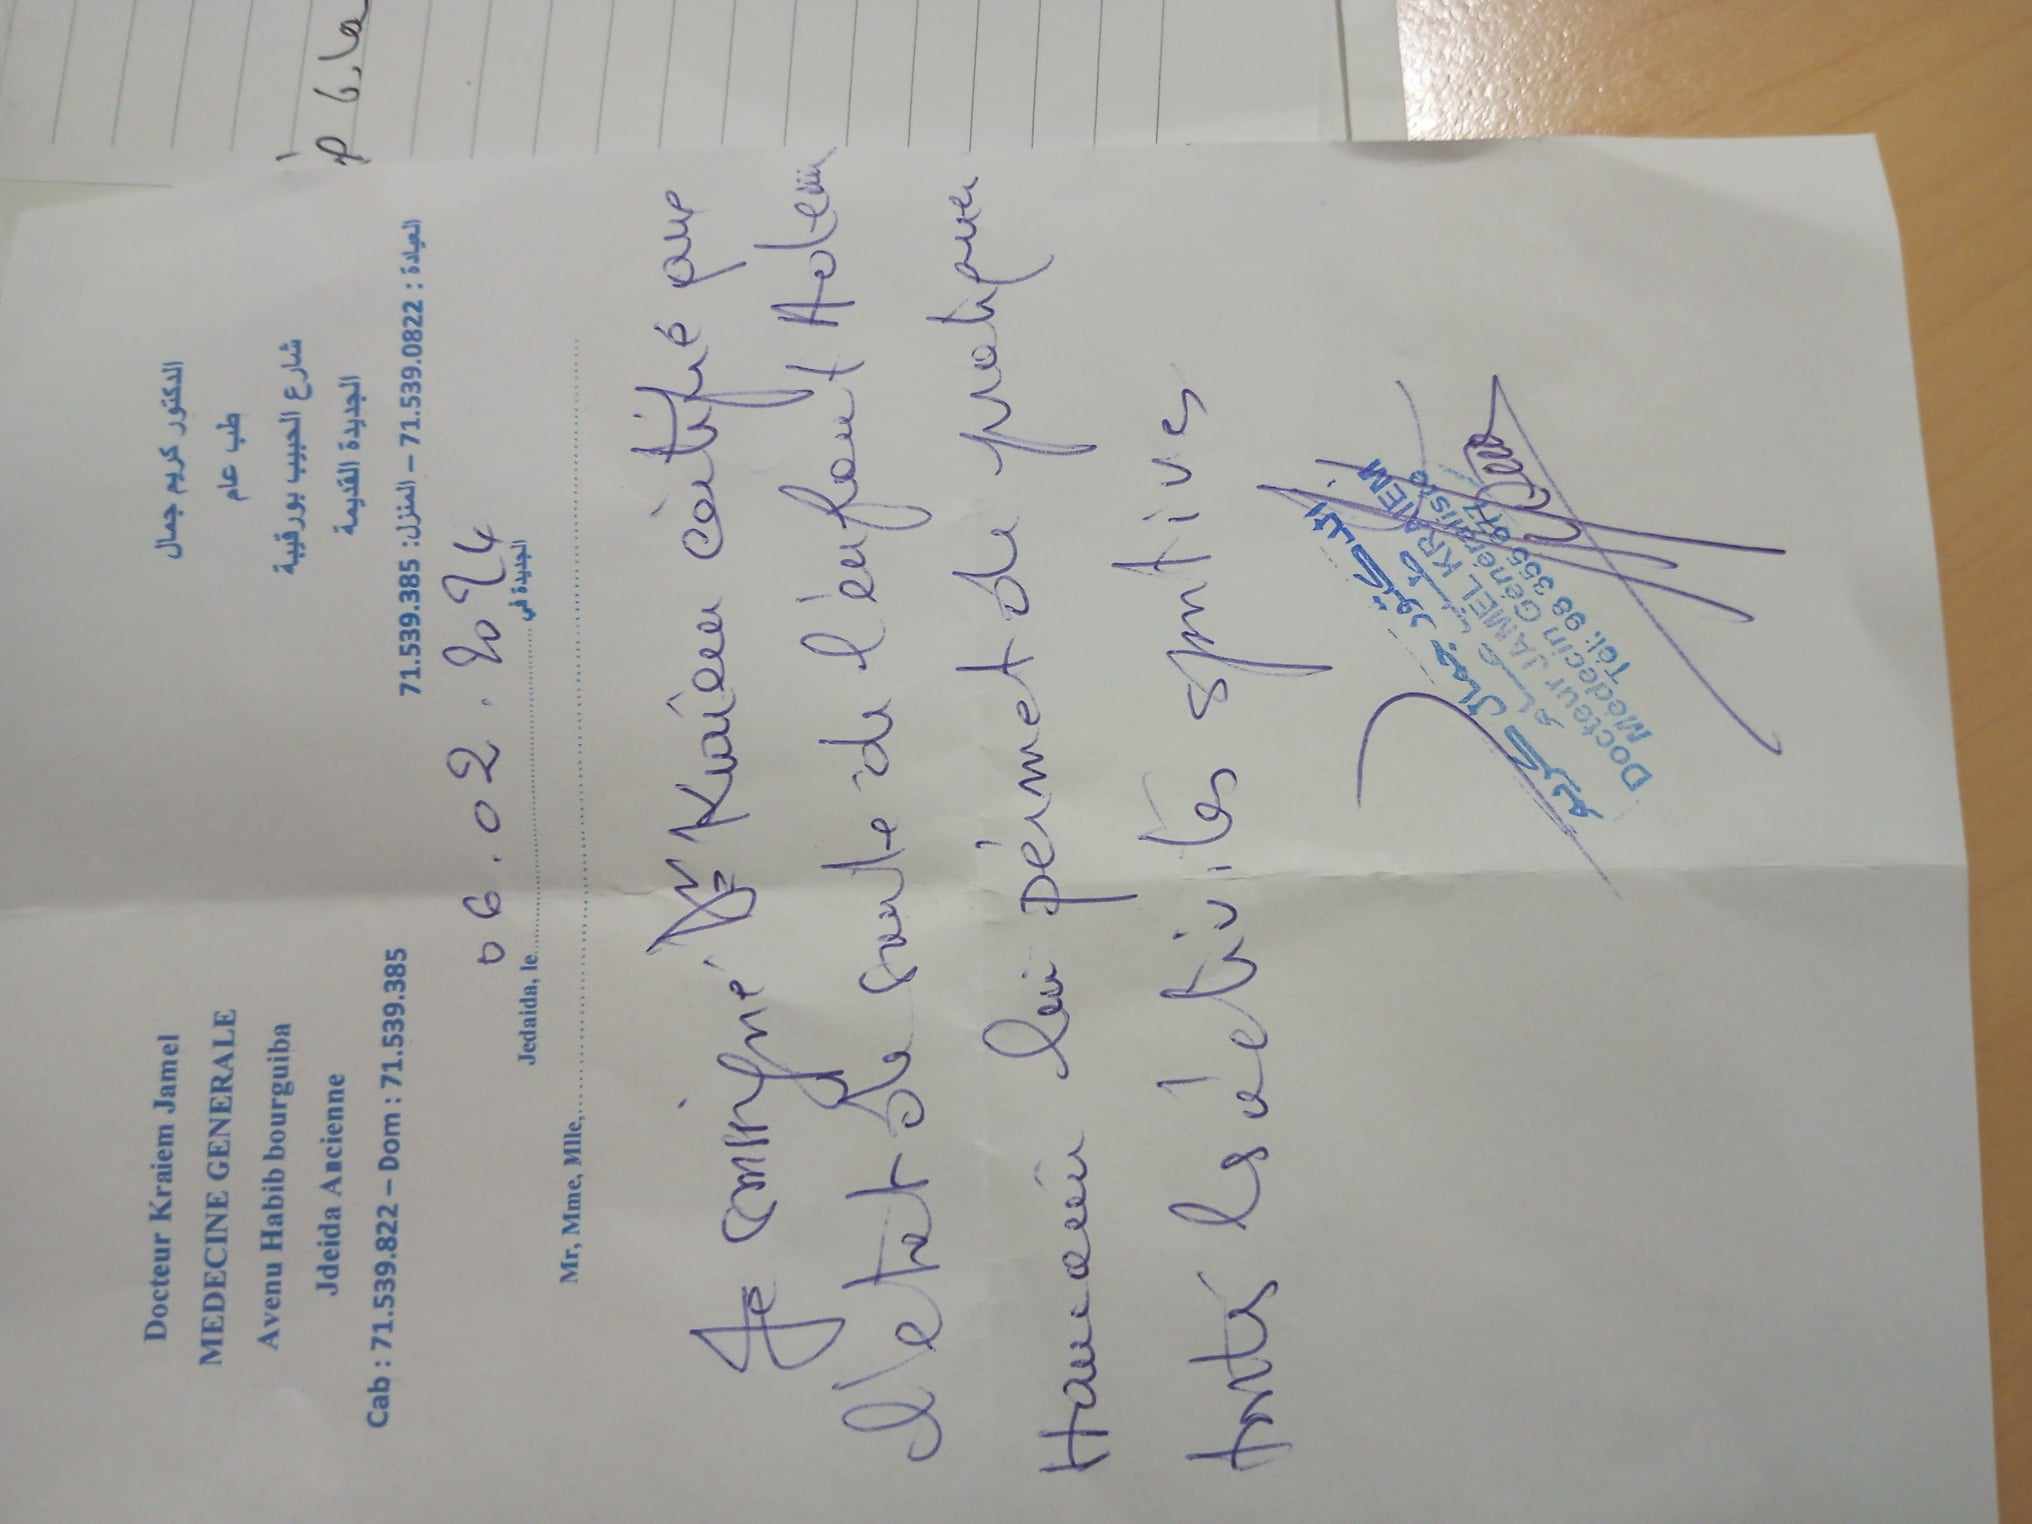 Docteur Kraiem Jamel
MEDECINE GENERALE
Avenu Habib bourguiba
Jdeida Ancienne
Cab : 71.539.822 – Dom : 71.539.385
الدكتور كريم جمال
طب عام
شارع الحبيب بورقيبة
الجديدة القديمة
العيادة : 71.539.0822 – المنزل: 71.539.385
06.02.2024
Jedaida, le............الجديدة في
Mr, Mme, Mlle,............
Je soussigné Dr Kraiem certifie que
l'etat de santé de l'enfant Adem
Hamami lui pérmet de pratiquer
toutes les activités sportives
الدكتور جمال كريم
طب عام
Docteur JAMEL KRAIEM
Médecin Généraliste
Tél: 98 355 617